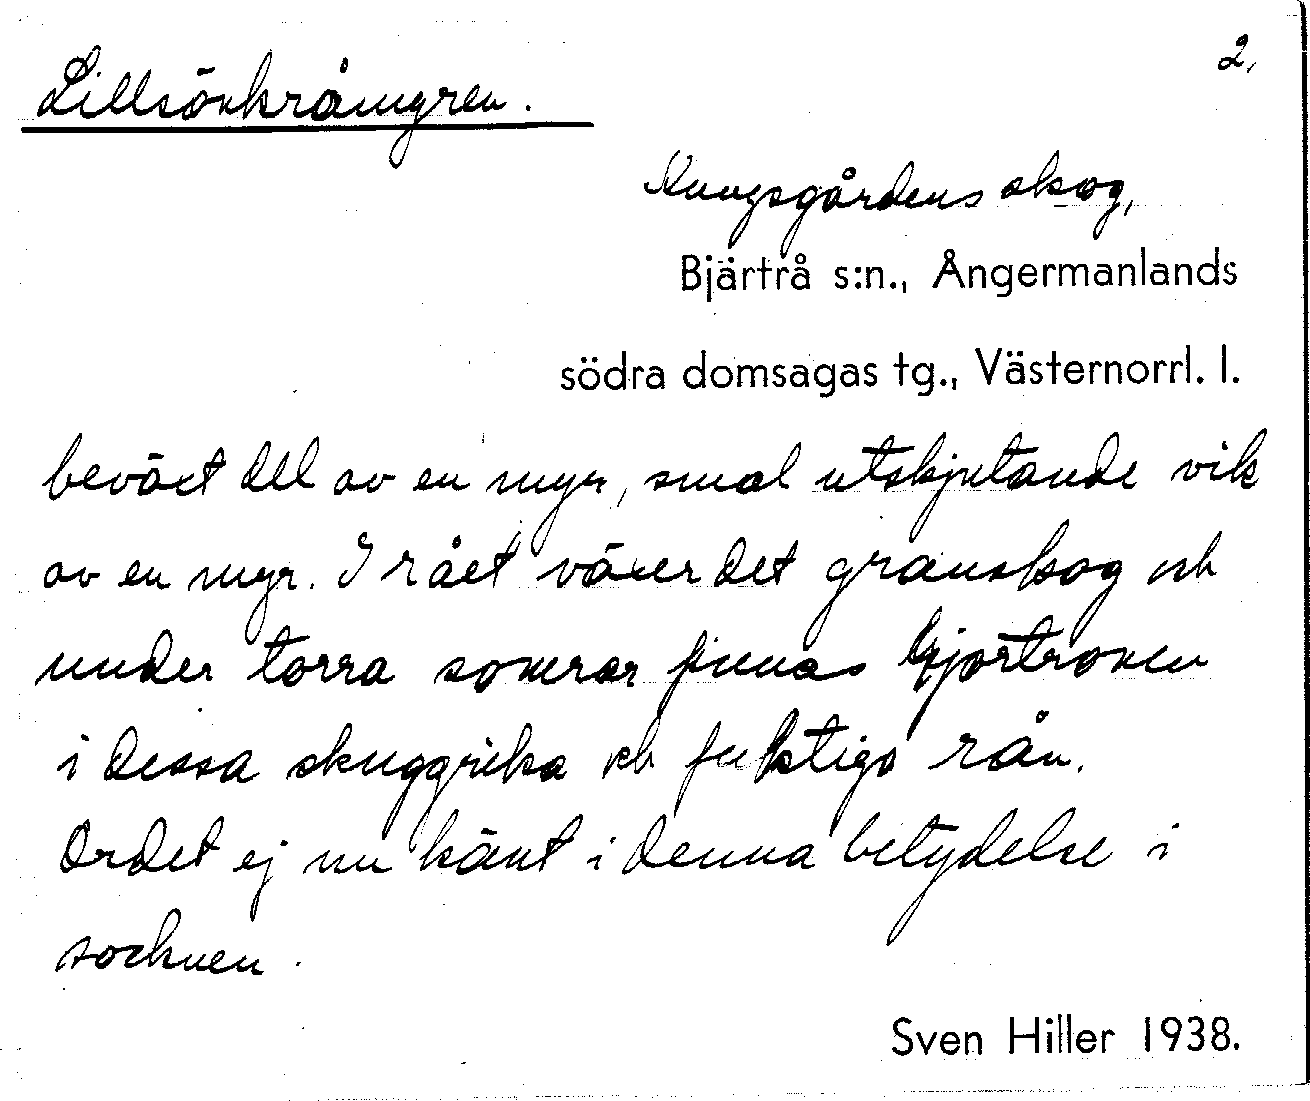 2.
Lillsönkråmyren.
Kungsgårdens skog,
Bjärtrå s:n., Ångermanlands
södra domsagas tg., Västernorrl. l.
beväxt del av en myr, smal utskjutande vik
av en myr. I rået växer det granskog och
under torra somrar finnas hjortronen
i dessa skuggrika och fuktiga rån.
Ordet ej nu känt i denna betydelse i
socknen.
Sven Hiller 1938.